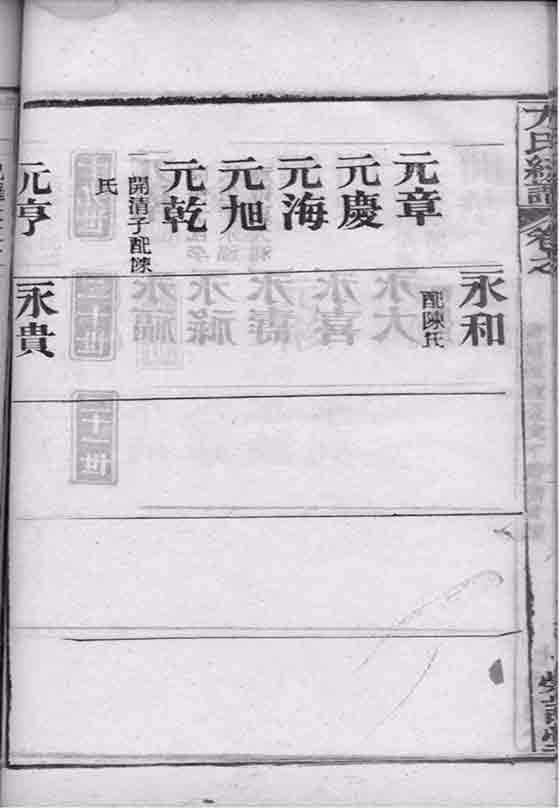 卷之
永和
配陳氏
元章
元慶
元海
元旭
元乾
開清子配陳
氏
元亨
永貴